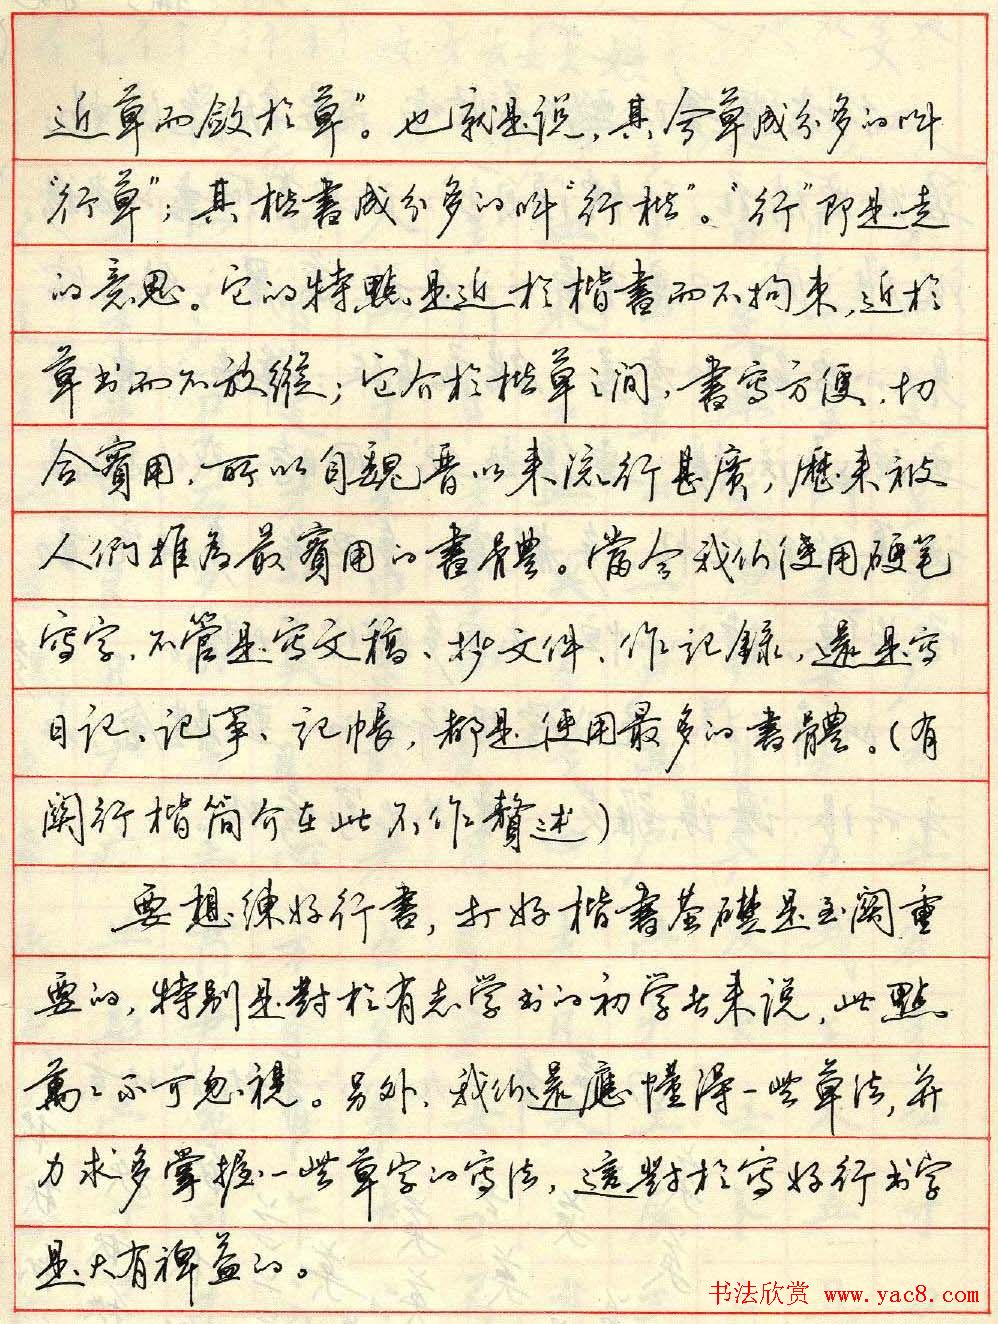 近草而斂於草”。也就是说，其今草成分多的叫
“行草”；其楷書成分多的叫“行楷”。“行”即是走
的意思。它的特點是近於楷書而不拘束，近於
草书而不放縱；它介於楷草之間，書寫方便，切
合實用，所以自魏晋以来流行甚廣，歷来被
人們推為最實用的書體。當今我们使用硬笔
寫字，不管是寫文稿、抄文件、作記錄，還是寫
日記、記事、記帳，都是使用最多的書體。（有
関行楷簡介在此不作贅述）
要想練好行書，打好楷書基礎是至関重
要的，特别是對於有志学书的初学者来说，此點
萬万不可忽視。另外，我们還應懂得一些草法，并
力求多掌握一些草字的寫法，這對於寫好行书字
是大有裨益的。
书法欣赏 www.yac8.com